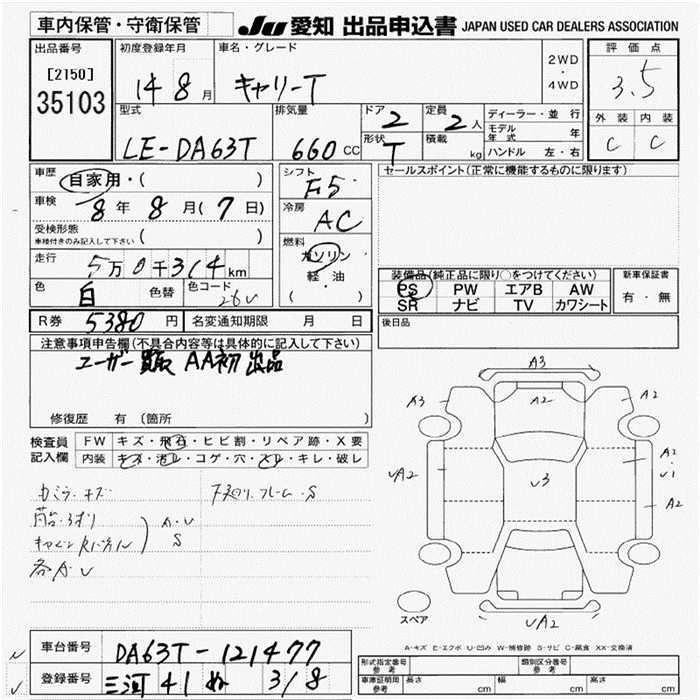 車内保管・守衛保管
JU 愛知 出品申込書 JAPAN USED CAR DEALERS ASSOCIATION
出品番号
[2150]
35103
初度登録年月
14 8 月
車名・グレード
キャリーT
2WD
・
4WD
評価点
3.5
外装 内装
C C
型式
LE-DA63T
排気量
660 CC
ドア
2
形状
T
定員
2 人
積載
kg
ディーラー・並行
モデル年式 年
ハンドル 左・右
車歴
自家用・( )
車検
8 年 8 月( 7 日)
受検形態
車検付きのみ記入して下さい ( )
走行
5万0千314km
色
白
色替
色コード
26U
シフト
F5
冷房
AC
燃料
ガソリン
軽・油
( )
セールスポイント(正常に機能するものに限ります)
装備品(純正品に限り○をつけてください)
PS PW エアB AW
SR ナビ TV カワシート
新車保証書
有・無
R券 5380 円 名変通知期限 月 日
後日品
注意事項申告欄(不具合内容等は具体的に記入して下さい)
ユーザー買取 AA初出品
修復歴 有(箇所 )
検査員
記入欄
FW キズ・飛石・ヒビ割・リペア跡・X要
内装 キズ・汚レ・コゲ・穴・スレ・キレ・破レ
下廻り.フレーム.S
A.U
S
各A.U
A3
A3
A2
A2
UA2
U3
A1
U1
A2
UA2
スペア
A-キズ E-エクボ U-凹み W-補修跡 S-サビ C-腐食 XX-交換済
車台番号
DA63T-121477
登録番号
三河 41 ぬ 318
型式指定番号
参考
類別区分番号
参考
車庫証明用
参考
長さ cm 幅 cm 高さ cm